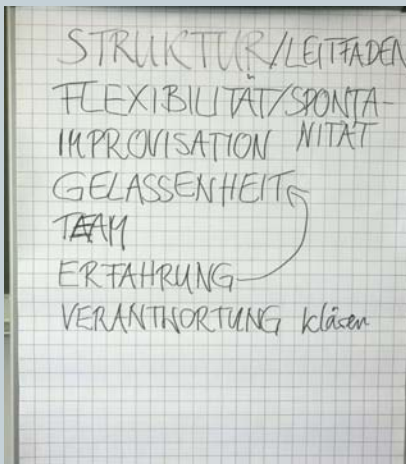 STRUKTUR/LEITFADEN
FLEXIBILITÄT/SPONTA-
IMPROVISATION NITÄT
GELASSENHEIT
TEAM
ERFAHRUNG
VERANTWORTUNG klären